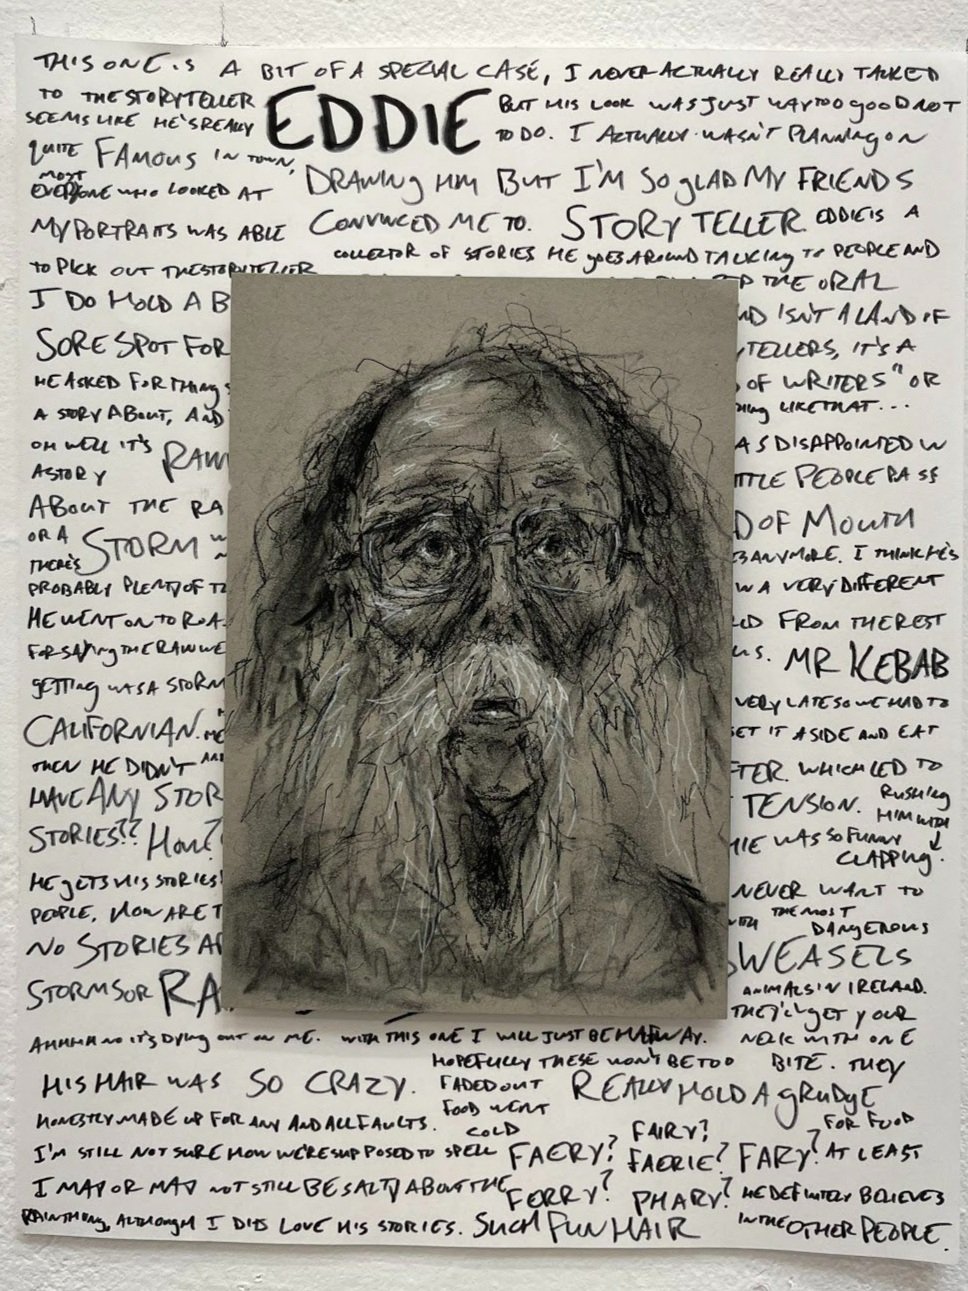 THIS ONE IS A BIT OF A SPECIAL CASE, I NEVER ACTUALLY REALLY TALKED
TO THE STORYTELLER EDDIE BUT HIS LOOK WAS JUST WAY TOO GOOD NOT
SEEMS LIKE HE'S REALLY TO DO. I ACTUALLY WASN'T PLANNING ON
QUITE FAMOUS IN TOWN, DRAWING HIM BUT I'M SO GLAD MY FRIENDS
MOST
EVERYONE WHO LOOKED AT
MY PORTRAITS WAS ABLE CONVINCED ME TO. STORYTELLER EDDIE IS A
TO PICK OUT THE STORYTELLER COLLECTOR OF STORIES HE GOES AROUND TALKING TO PEOPLE AND
I DO HOLD A B THE ORAL
ND ISN'T A LAND IF
SORE SPOT FOR TELLERS, IT'S A
HE ASKED FOR THINGS OF WRITERS" OR
A STORY ABOUT, AND HING LIKE THAT...
OH WELL IT'S RAW AS DISAPPOINTED IN
A STORY TTLE PEOPLE PASS
ABOUT THE RA D OF MOUTH
OR A STORM ES ANYMORE. I THINK HE'S
THERE'S
PROBABLY PLENTY OF T W A VERY DIFFERENT
HE WENT ON TO ROA LD FROM THE REST
FOR SAYING THE RAW WE US. MR KEBAB
GETTING WAS A STORM VERY LATE SO WE HAD TO
CALIFORNIAN. ET IT ASIDE AND EAT
THEN HE DIDN'T AN FTER. WHICH LED TO
HAVE ANY STOR TENSION. RUSHING
HIM WITH
STORIES?? HOW? HIE WAS SO FUNNY CLAPPING.
HE GETS HIS STORIES NEVER WANT TO
PEOPLE, HOW ARE T WITH THE MOST
DANGEROUS
NO STORIES A WEASELS
STORMS OR RA ANIMALS IN IRELAND.
THEY'LL GET YOUR
AHHHH NO IT'S DYING OUT ON ME. WITH THIS ONE I WILL JUST BE HALFWAY. NECK WITH ONE
HOPEFULLY THESE WON'T BE TOO BITE. THEY
HIS HAIR WAS SO CRAZY. FADED OUT REALLY HOLD A GRUDGE
HONESTLY MADE UP FOR ANY AND ALL FAULTS. FOOD WENT FOR FOOD
COLD FAIRY?
I'M STILL NOT SURE HOW WE'RE SUPPOSED TO SPELL FAERY? FAERIE? FARY? AT LEAST
I MAY OR MAY NOT STILL BE SALTY ABOUT THE FERRY? PHARY? HE DEFINITELY BELIEVES
RAIN THING, ALTHOUGH I DID LOVE HIS STORIES. SUCH FUN HAIR IN THE OTHER PEOPLE.